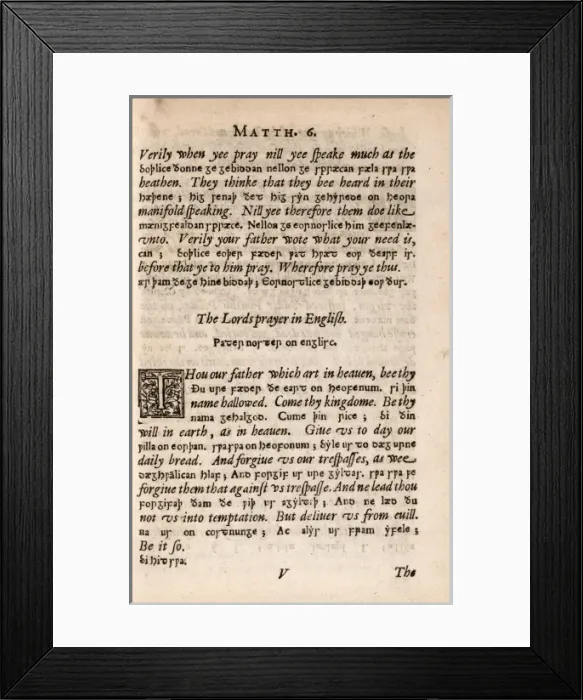 MATTH. 6.
Verily when yee pray nill yee ſpeake much as the
Soþlice ðonne ge gebiddan nellon ge sprꞃæcan fæla sƿa sƿa
heathen. They thinke that they bee heard in their
hæþene ; hig penaþ ðet hig sýn gehyrede on heora
manifold ſpeaking. Nill yee therefore them doe like
mænigfealdan spræce. Nellon ge eornoſtlice him geefenlæ-
vnto. Verily your father wote what your need is,
can ; Soþlice eoƿer fæder ƿat hƿæt eoƿ ðearf is.
before that ye to him pray. Wherefore pray ye thus.
ær þam ðe ge hine biddaþ ; Eornostlice gebiddaþ eoƿ ðus.
The Lords prayer in Engliſh.
Pater noster on englisc.
THou our father which art in heauen, bee thy
Ðu ure fæder ðe eart on heofenum. si þin
name hallowed. Come thy kingdome. Be thy
nama gehalgod. Cume þin rice ; Si ðin
will in earth, as in heauen. Giue vs to day our
ƿilla on eorþan. sƿa sƿa on heofonum ; Sýle us to dæg urne
daily bread. And forgiue vs our treſpaſſes, as wee
dæghƿālican hlaf ; And forgif us ure gýltas. sƿa sƿa ƿe
forgiue them that againſt vs treſpaſſe. And ne lead thou
forgifaþ ðam ðe ƿiþ us agýltaþ ; And ne læd ðu
not vs into temptation. But deliuer vs from euill.
na us on costnunge ; Ac alýs us fram ýfele ;
Be it ſo.
Si hit sƿa.
V The